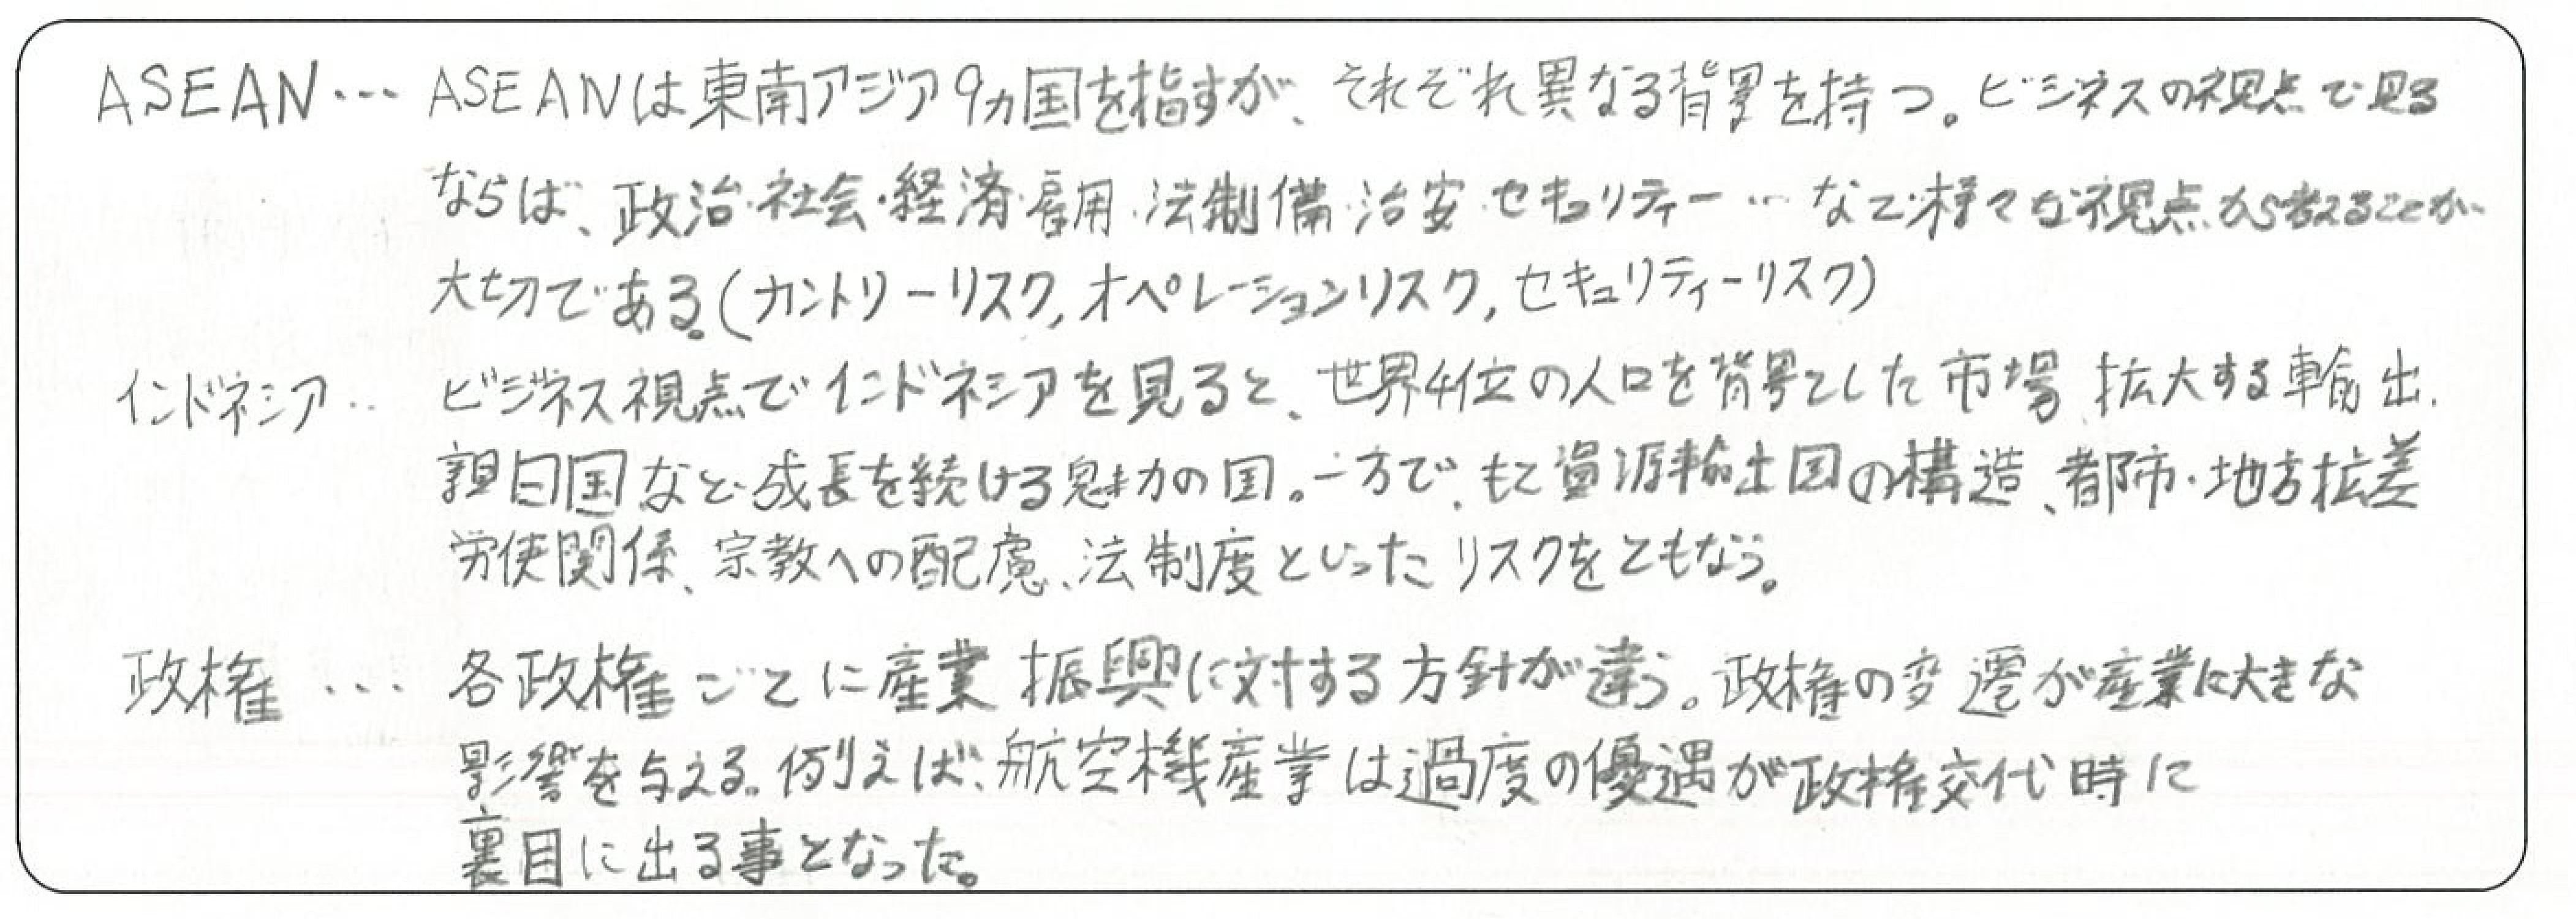 ASEAN… ASEANは東南アジア9ヵ国を指すが、それぞれ異なる背景を持つ。ビジネスの視点で見る
ならば、政治・社会・経済・雇用・法制備・治安・セキュリティー…など様々な視点から考えることが
大切である。(カントリーリスク,オペレーションリスク,セキュリティーリスク)
インドネシア… ビジネス視点でインドネシアを見ると、世界4位の人口を背景とした市場、拡大する輸出、
親日国など成長を続ける魅力の国。一方で、もと資源輸出国の構造、都市・地方拡差
労使関係、宗教への配慮、法制度といったリスクをともなう。
政権… 各政権ごとに産業振興に対する方針が違う。政権の変遷が産業に大きな
影響を与える。例えば、航空機産業は過度の優遇が政権交代時に
裏目に出る事となった。